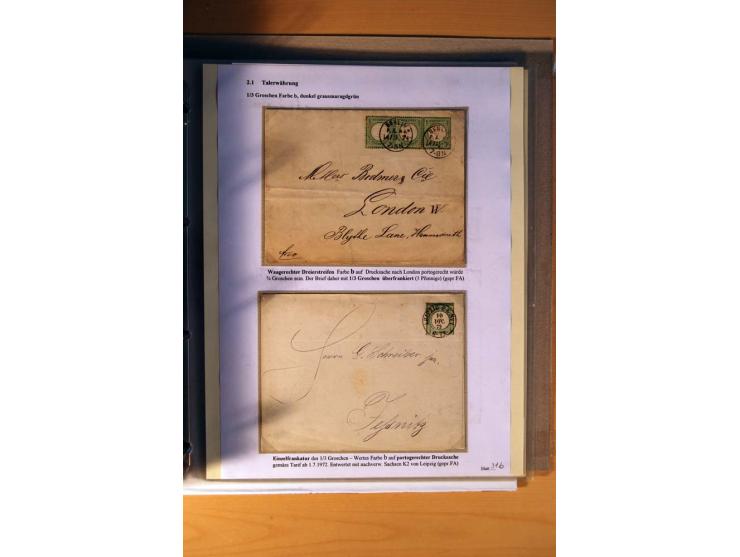 2.1 Talerwährung
1/3 Groschen Farbe b, dunkel grausmaragdgrün
BERLIN
Bodmer & Cie
London W
Blythe Lane, Hammersmith
frco
Waagerechter Dreierstreifen Farbe b auf Drucksache nach London portogerecht würde
Groschen sein. Der Brief daher mit 1/3 Groschen überfrankiert (3 Pfennige) (gepr.FA)
LEIPZIG
10
DEC.
Herrn G. Schreiber jun.
Jeßnitz
Einzelfrankatur des 1/3 Groschen – Wertes Farbe b auf portogerechter Drucksache
gemäss Tarif ab 1.7.1972. Entwertet mit nachverw. Sachsen K2 von Leipzig (gepr.FA)
Blatt 316